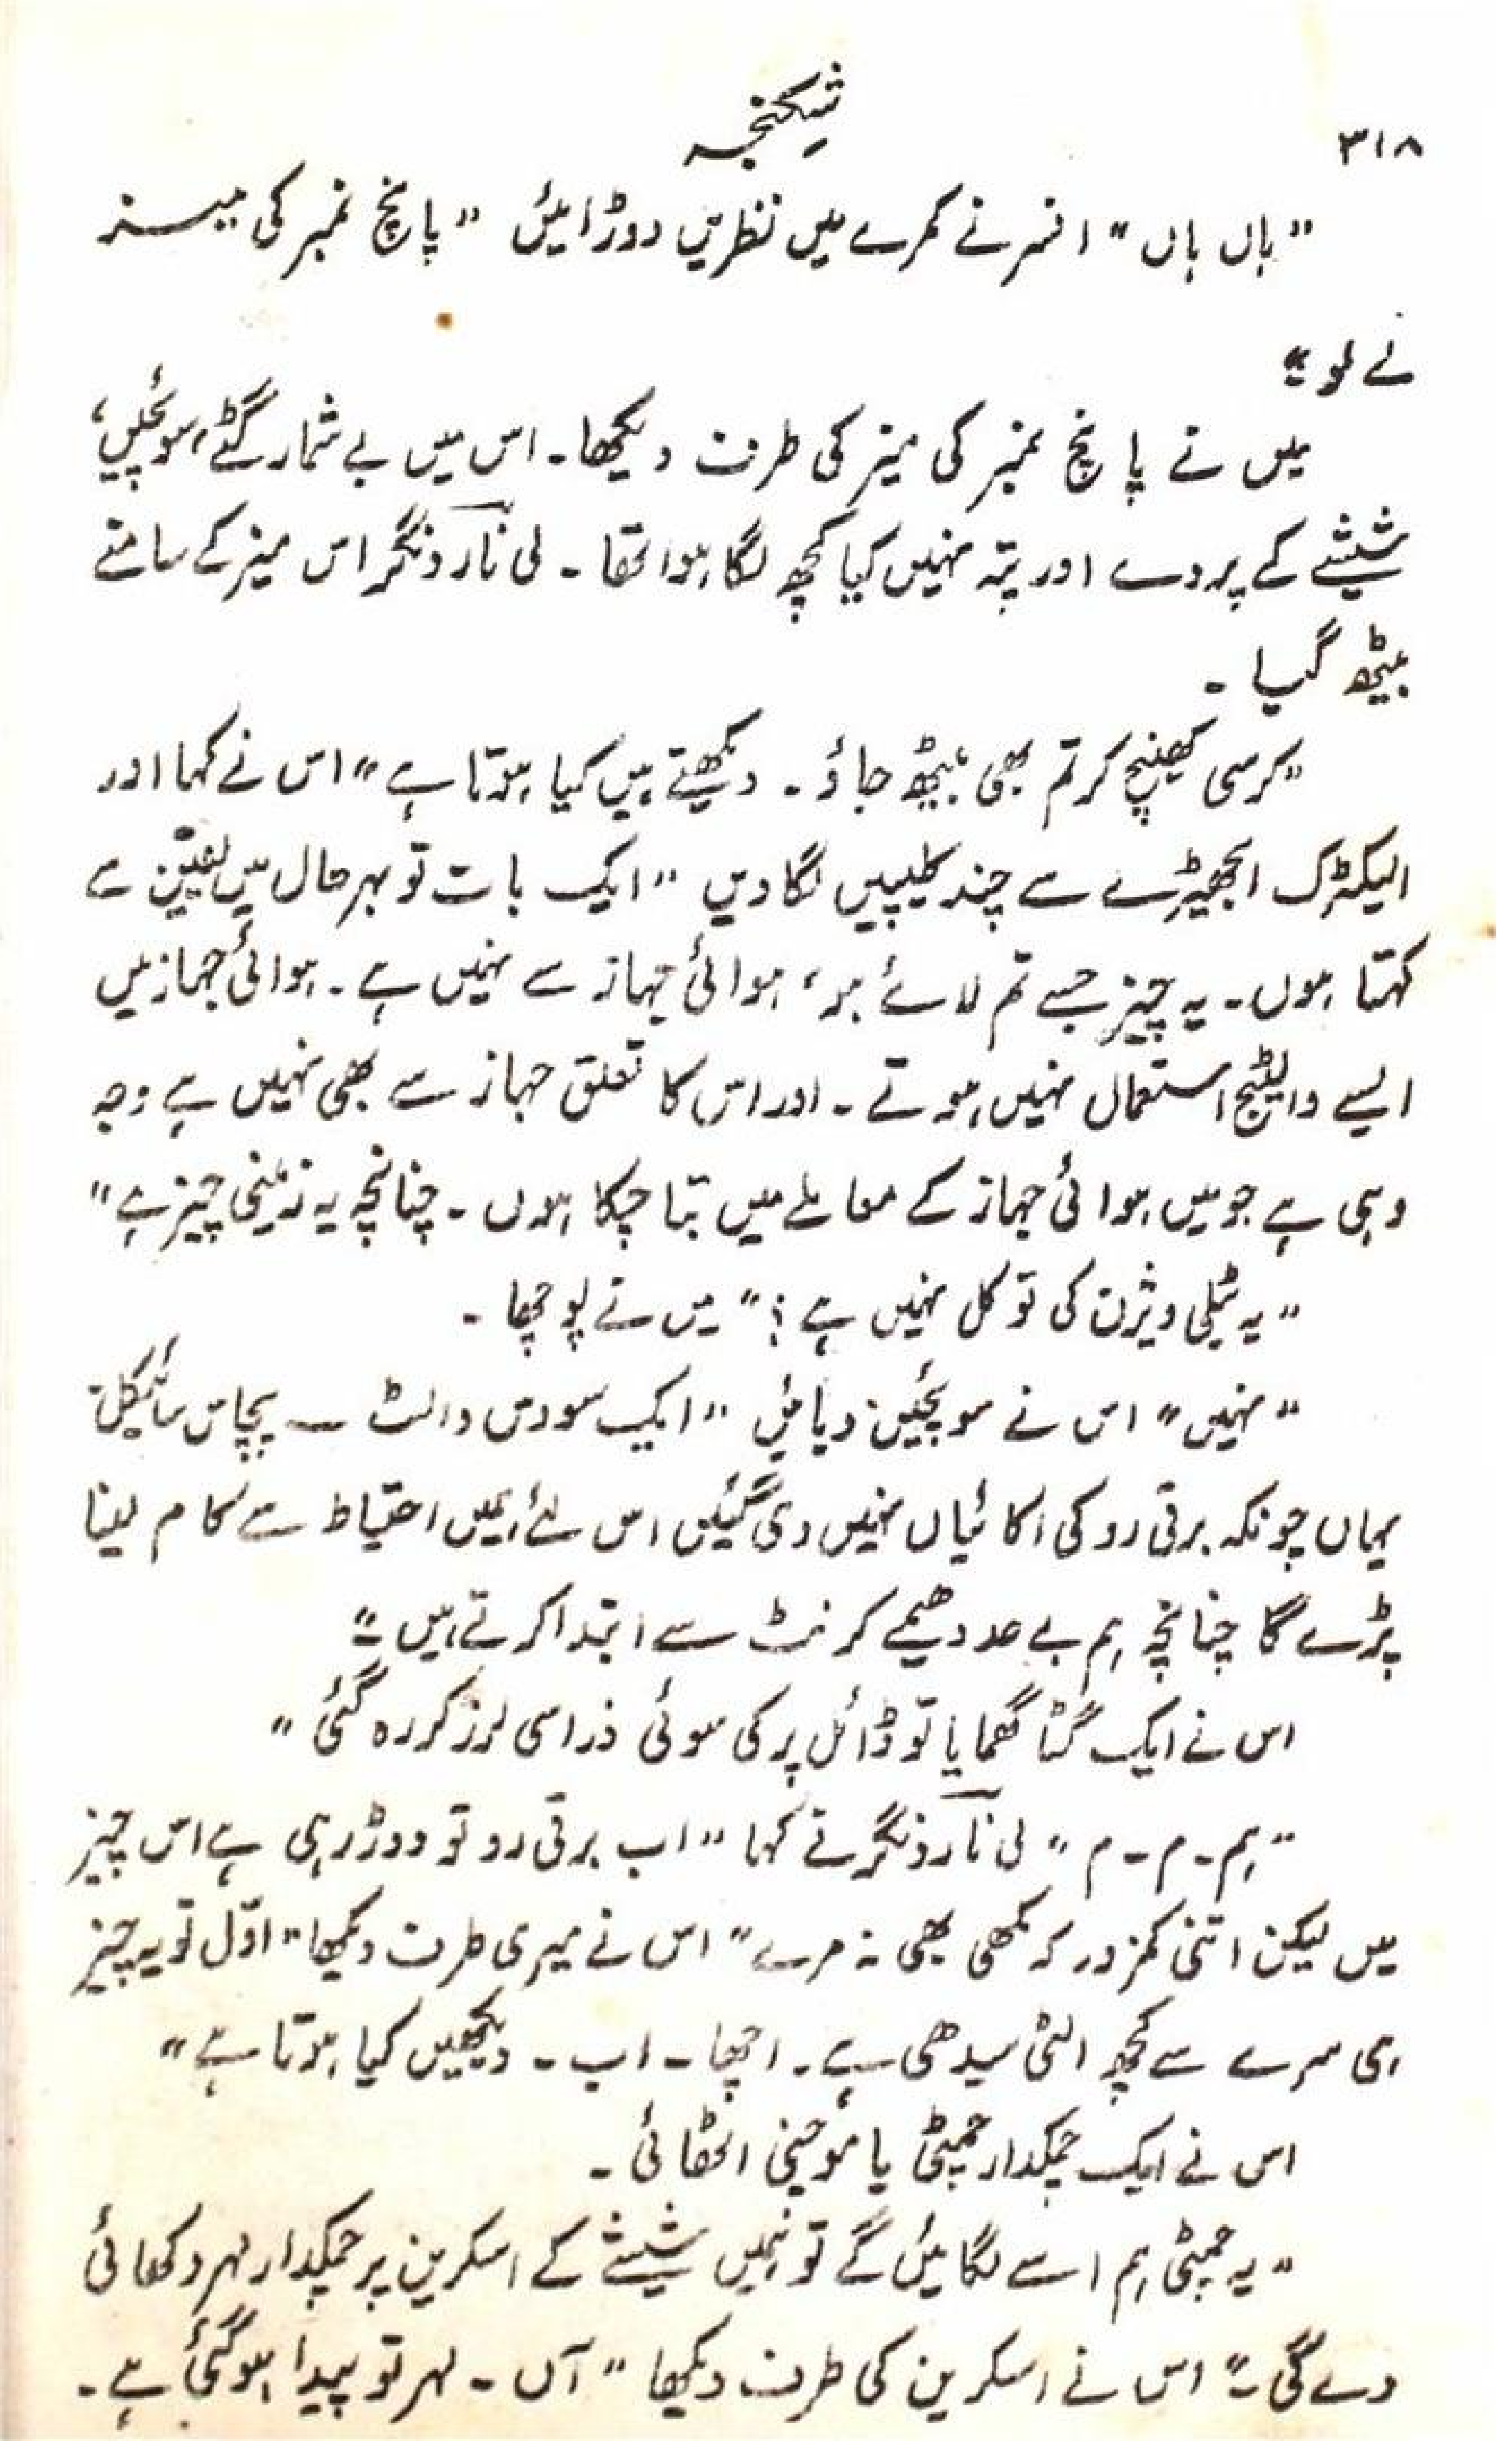 ۳۱۸
شیکنجہ
"ہاں ہاں" افسر نے کمرے میں نظریں دوڑائیں "پانچ نمبر کی میز
لے لو"
میں نے پانچ نمبر کی میز کی طرف دیکھا۔ اس میں بے شمار گٹے، سوئچیں،
شیشے کے پردے اور پتہ نہیں کیا کچھ لگا ہوا تھا۔ لی نآرونگر اس میز کے سامنے
بیٹھ گیا۔
"کرسی کھینچ کر تم بھی بیٹھ جاؤ۔ دیکھتے ہیں کیا ہوتا ہے" اس نے کہا اور
الیکٹرک ابھیڑے سے چند کلیپیں لگا دیں "ایک بات تو بہر حال میں یقین سے
کہتا ہوں۔ یہ چیز جسے تم لائے ہو، ہوائی جہاز سے نہیں ہے۔ ہوائی جہاز میں
ایسے والٹیج استعمال نہیں ہوتے۔ اور اس کا تعلق جہاز سے بھی نہیں ہے وجہ
وہی ہے جو میں ہوائی جہاز کے معاملے میں بتا چکا ہوں۔ چنانچہ یہ زمینی چیز ہے"
"یہ ٹیلی ویژن کی تو کل نہیں ہے؟" میں نے پوچھا۔
"نہیں" اس نے سوئچیں دبائیں "ایک سو دس والٹ ــ پچاس سائیکل۔
یہاں چونکہ برقی رو کی اکائیاں نہیں دی گئیں اس لئے ہمیں احتیاط سے کام لینا
پڑے گا چنانچہ ہم بے حد دھیمے کرنٹ سے ابتدا کرتے ہیں"
اس نے ایک گٹا گھمایا تو ڈائل پر کی سوئی ذرا سی لرز کر رہ گئی"
"ہم۔م۔م" لی نآرونگر نے کہا "اب برقی رو تو دوڑ رہی ہے اس چیز
میں لیکن اتنی کمزور کہ مکھی بھی نہ مرے" اس نے میری طرف دیکھا "اوّل تو یہ چیز
ہی سرے سے کچھ الٹی سیدھی ہے۔ اچھا۔ اب۔ دیکھیں کیا ہوتا ہے"
اس نے ایک چمکدار چمپٹی یا موچنی اٹھائی۔
"یہ چمپٹی ہم اسے لگائیں گے تو ہمیں شیشے کے اسکرین پر چمکدار لہر دکھائی
دے گی" اس نے اسکرین کی طرف دیکھا "آں۔ لہر تو پیدا ہو گئی ہے۔